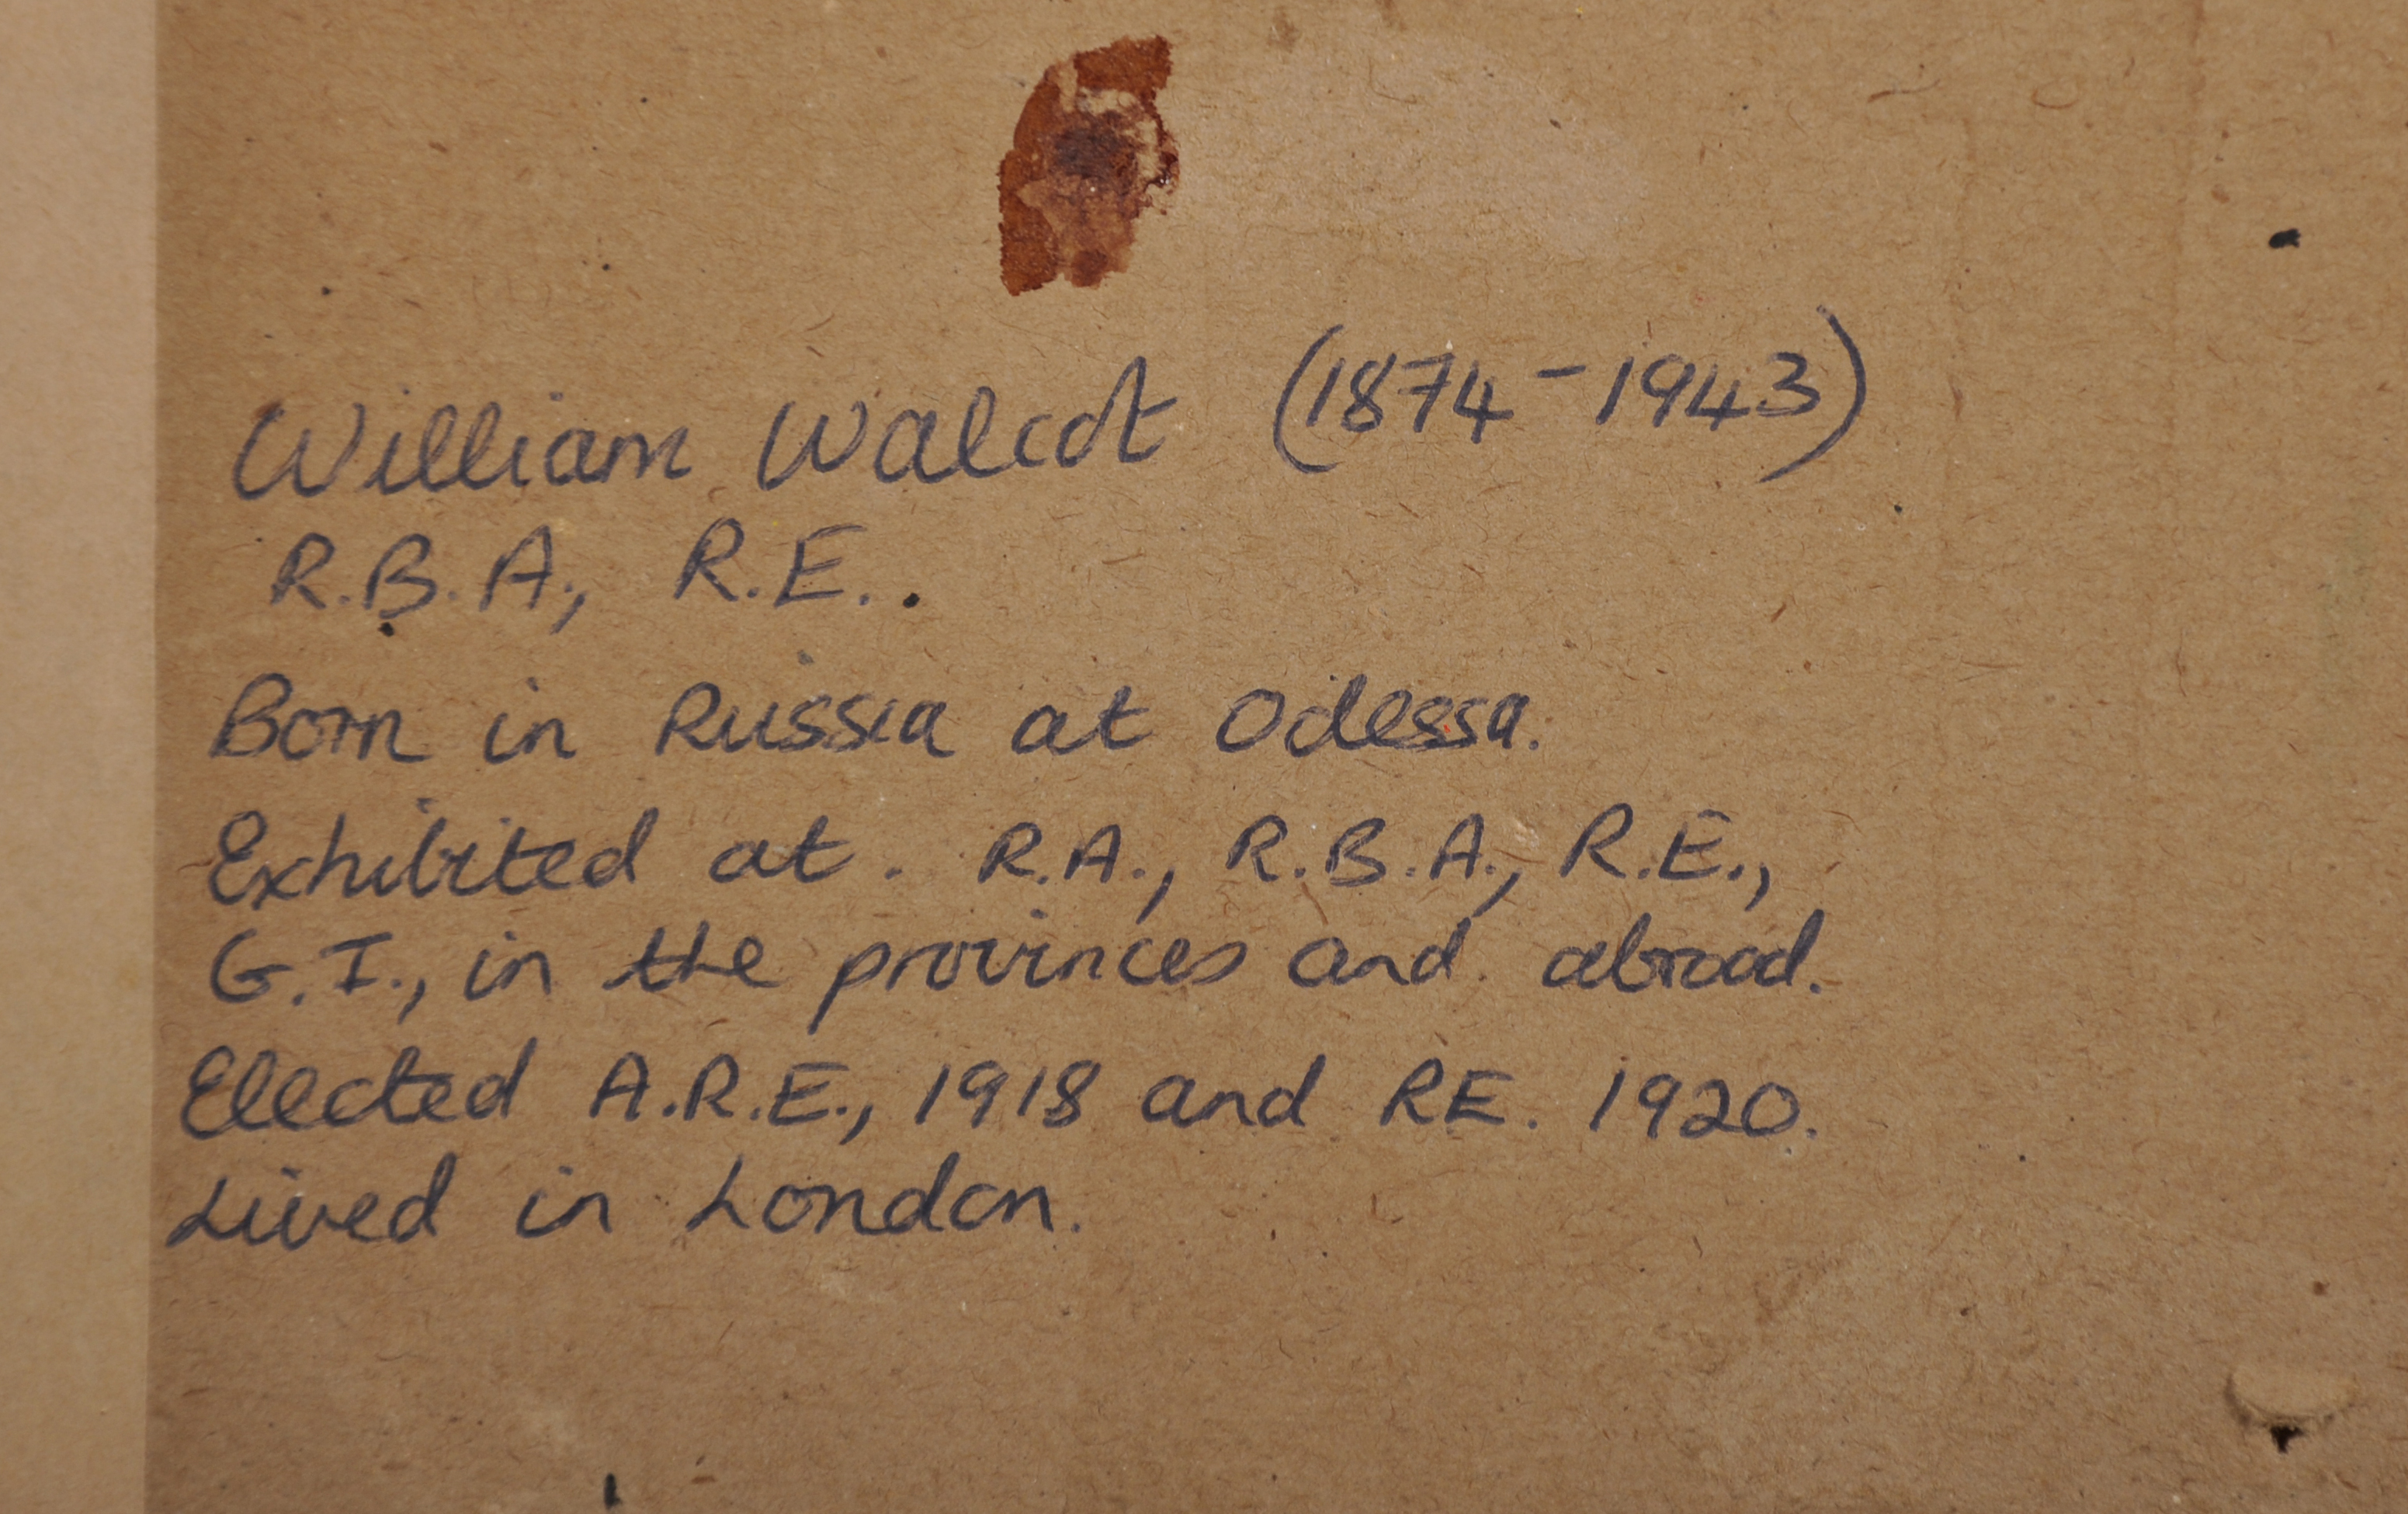 William Walcot (1874-1943)
R.B.A., R.E..
Born in Russia at Odessa.
Exhibited at. R.A., R.B.A., R.E.,
G.I., in the provinces and abroad.
Elected A.R.E., 1918 and RE. 1920.
Lived in London.